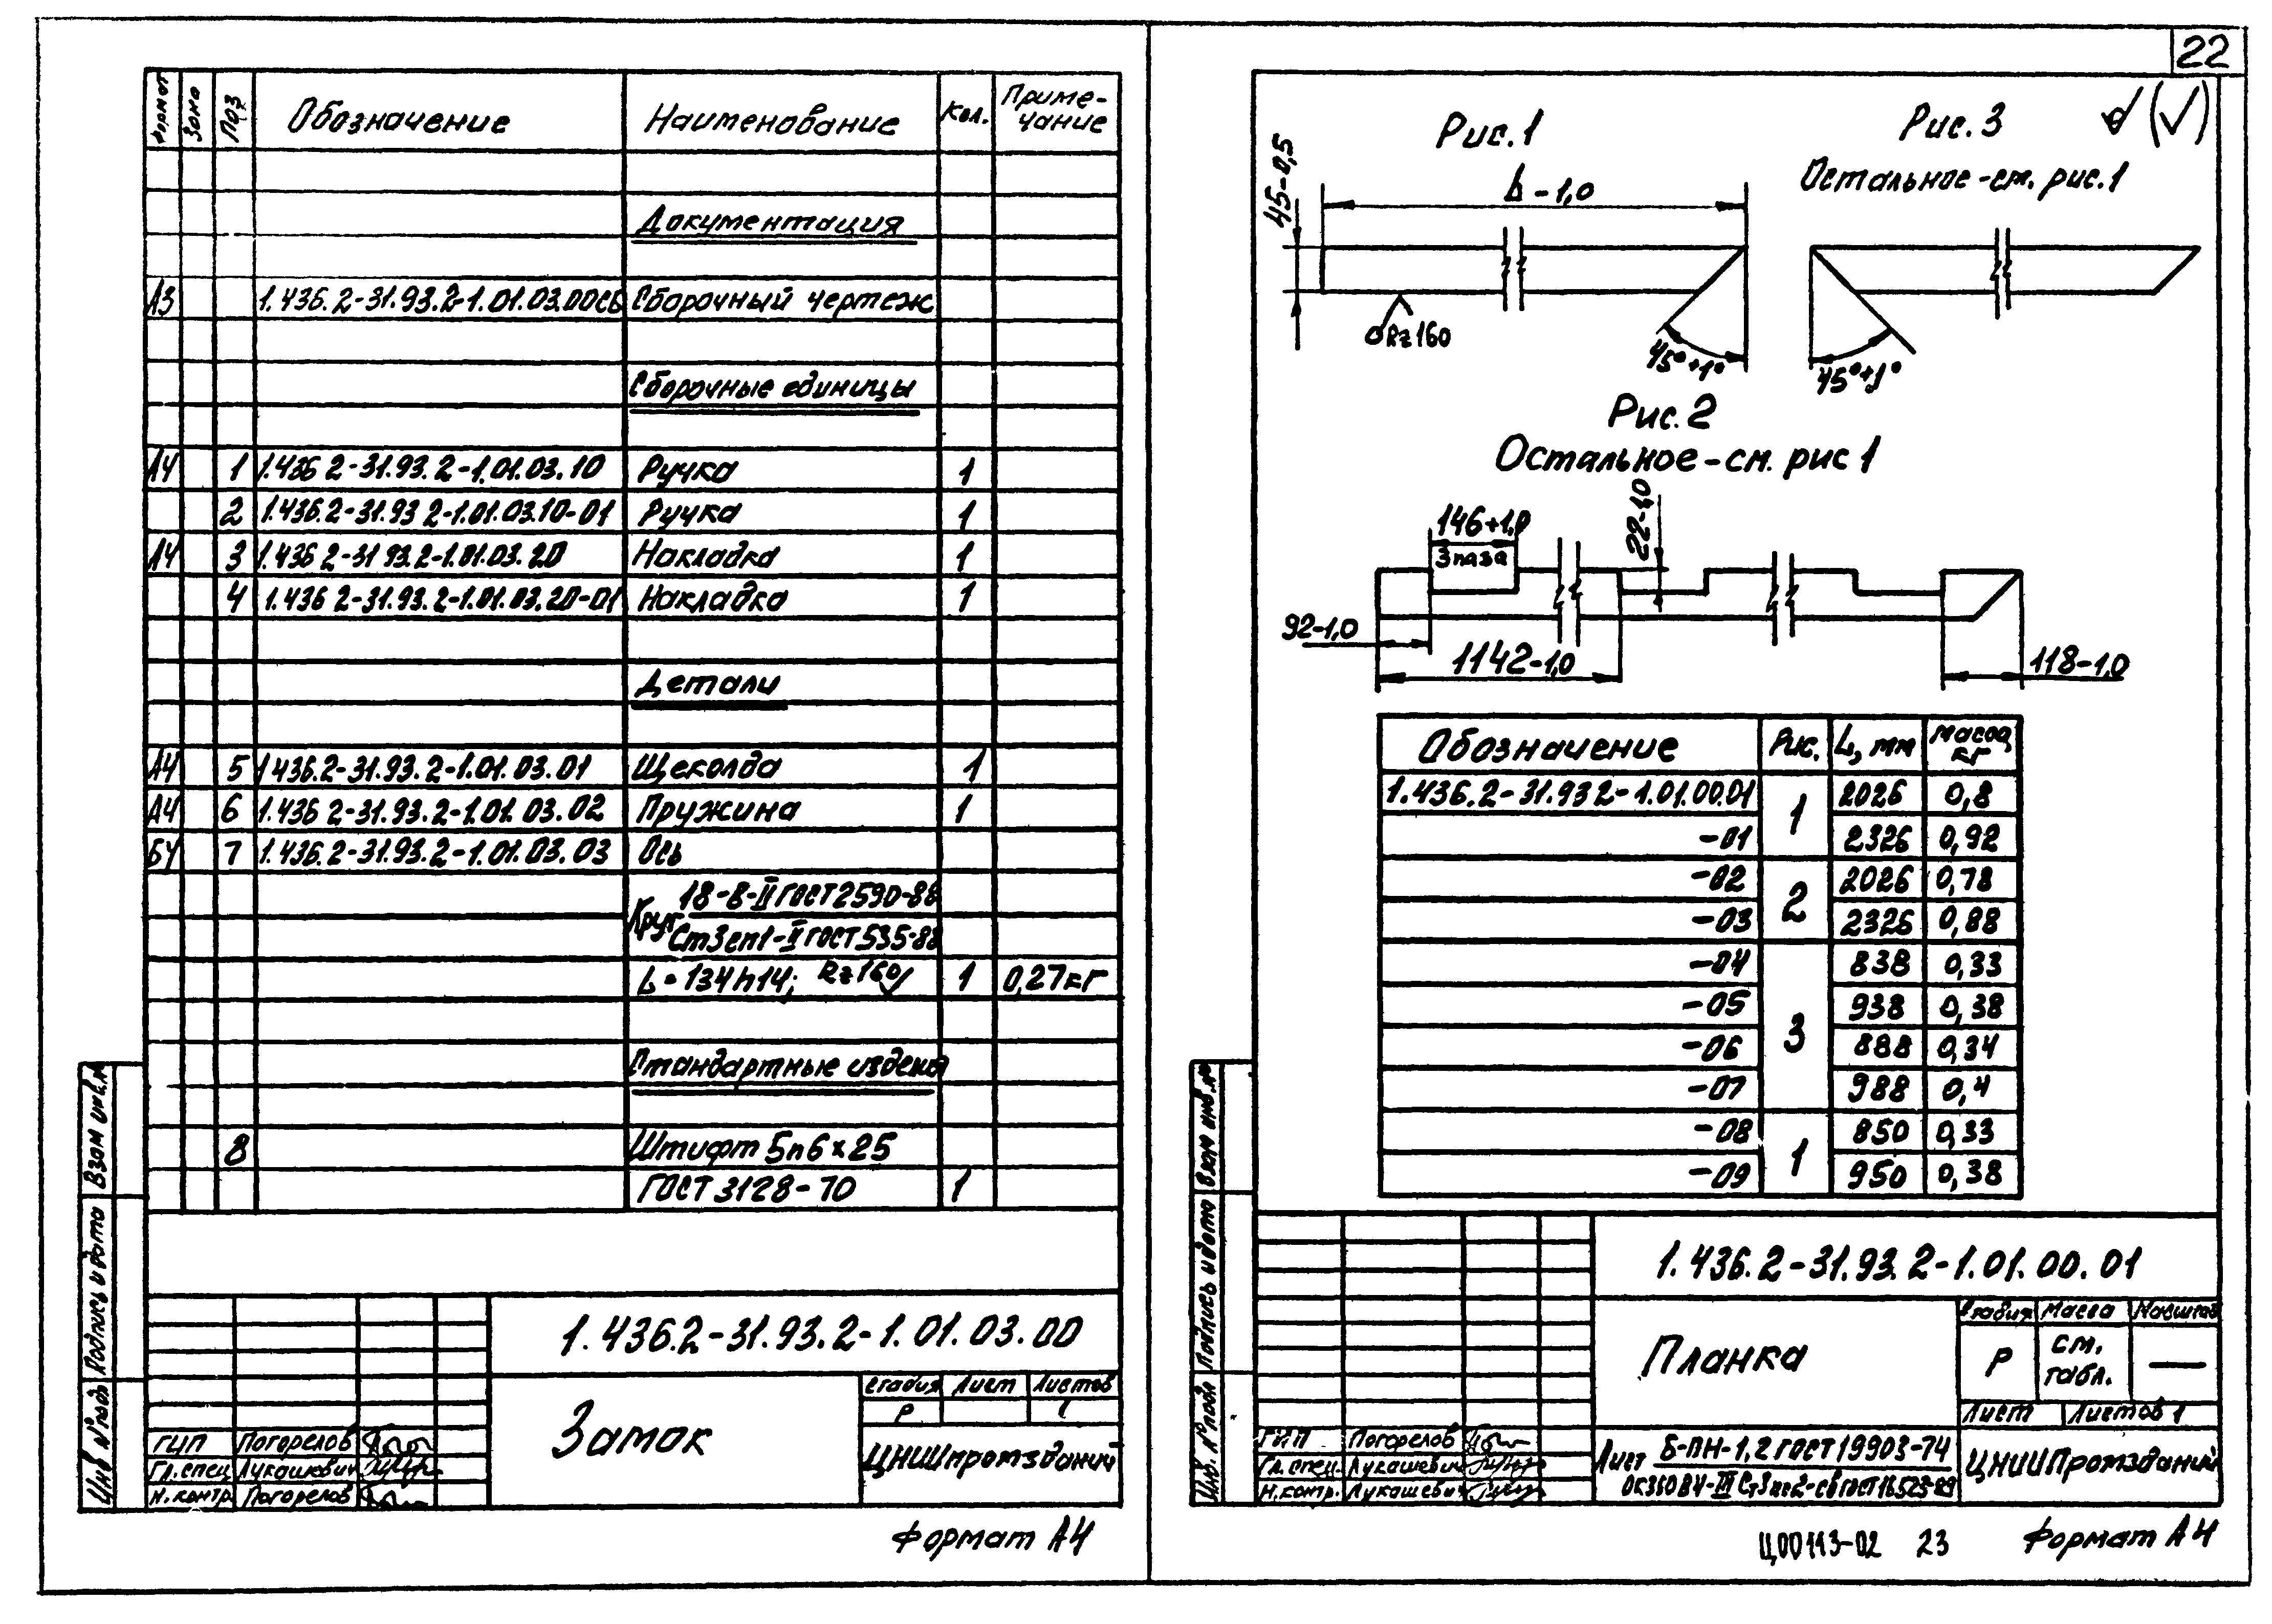 22
Формат
Зона
Поз
Обозначение
Наименование
Кол.
Приме-
чание
Документация
А3 1.436.2-31.93.2-1.01.03.00СБ Сборочный чертеж
Сборочные единицы
А4 1 1.436 2-31.93.2-1.01.03.10 Ручка 1
2 1.436.2-31.93 2-1.01.03.10-01 Ручка 1
А4 3 1.436 2-31 93.2-1.01.03.20 Накладка 1
4 1.436 2-31.93.2-1.01.03.20-01 Накладка 1
Детали
А4 5 1 436.2-31.93.2-1.01.03.01 Щеколда 1
А4 6 1.436 2-31.93.2-1.01.03.02 Пружина 1
БЧ 7 1.436.2-31.93.2-1.01.03.03 Ось
Круг 18-В-II ГОСТ 2590-88
Ст3сп1-II ГОСТ 535-88
L = 134h14; Rz160 1 0,27кг
Стандартные издели
8 Штифт 5п6×25
ГОСТ 3128-70 1
1.436.2-31.93.2-1.01.03.00
Замок
Стадия Лист Листов
Р 1
ЦНИИпромзданий
ГИП Погорелов
Гл.спец Лукашевич
Н.контр. Погорелов
Взам инв.№
Подпись и дата
Инв №подл
Формат А4
Рис.1
Рис.3
Остальное-см. рис.1
L-1,0
45-0,5
Rz160
45°+1°
45°+1°
Рис.2
Остальное-см. рис 1
146+1,0
3 паза
22-1,0
92-1,0
1142-1,0
118-1,0
Обозначение Рис. L, мм Масса, кг
1.436.2-31.93 2-1.01.00.01 1 2026 0,8
-01 2326 0,92
-02 2 2026 0,78
-03 2326 0,88
-04 3 838 0,33
-05 938 0,38
-06 888 0,34
-07 988 0,4
-08 1 850 0,33
-09 950 0,38
1.436.2-31.93.2-1.01.00.01
Планка
Стадия Масса Масштаб
Р см. табл. —
Лист Листов 1
Лист Б-ПН-1,2 ГОСТ 19903-74
ОК360В4-III Ст3пс2-св ГОСТ 16523-89
ЦНИИПромзданий
ГИП Погорелов
Гл.спец. Лукашевич
Н.контр. Лукашевич
Взам инв.№
Подпись и дата
Инв. №подл
Ц00113-02 23
Формат А4